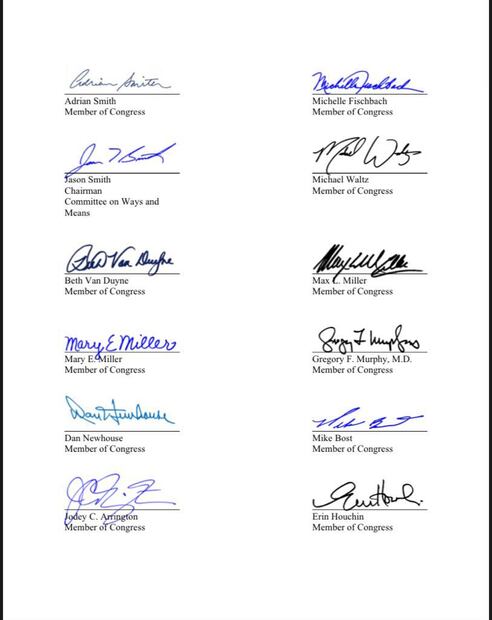 Adrian Smith
Adrian Smith
Member of Congress
Michelle Fischbach
Michelle Fischbach
Member of Congress
Jason T Smith
Jason Smith
Chairman
Committee on Ways and
Means
Michael Waltz
Michael Waltz
Member of Congress
Beth Van Duyne
Beth Van Duyne
Member of Congress
Max L. Miller
Max L. Miller
Member of Congress
Mary E Miller
Mary E. Miller
Member of Congress
Gregory F Murphy
Gregory F. Murphy, M.D.
Member of Congress
Dan Newhouse
Dan Newhouse
Member of Congress
Mike Bost
Mike Bost
Member of Congress
Jodey C. Arrington
Member of Congress
Erin Houchin
Erin Houchin
Member of Congress